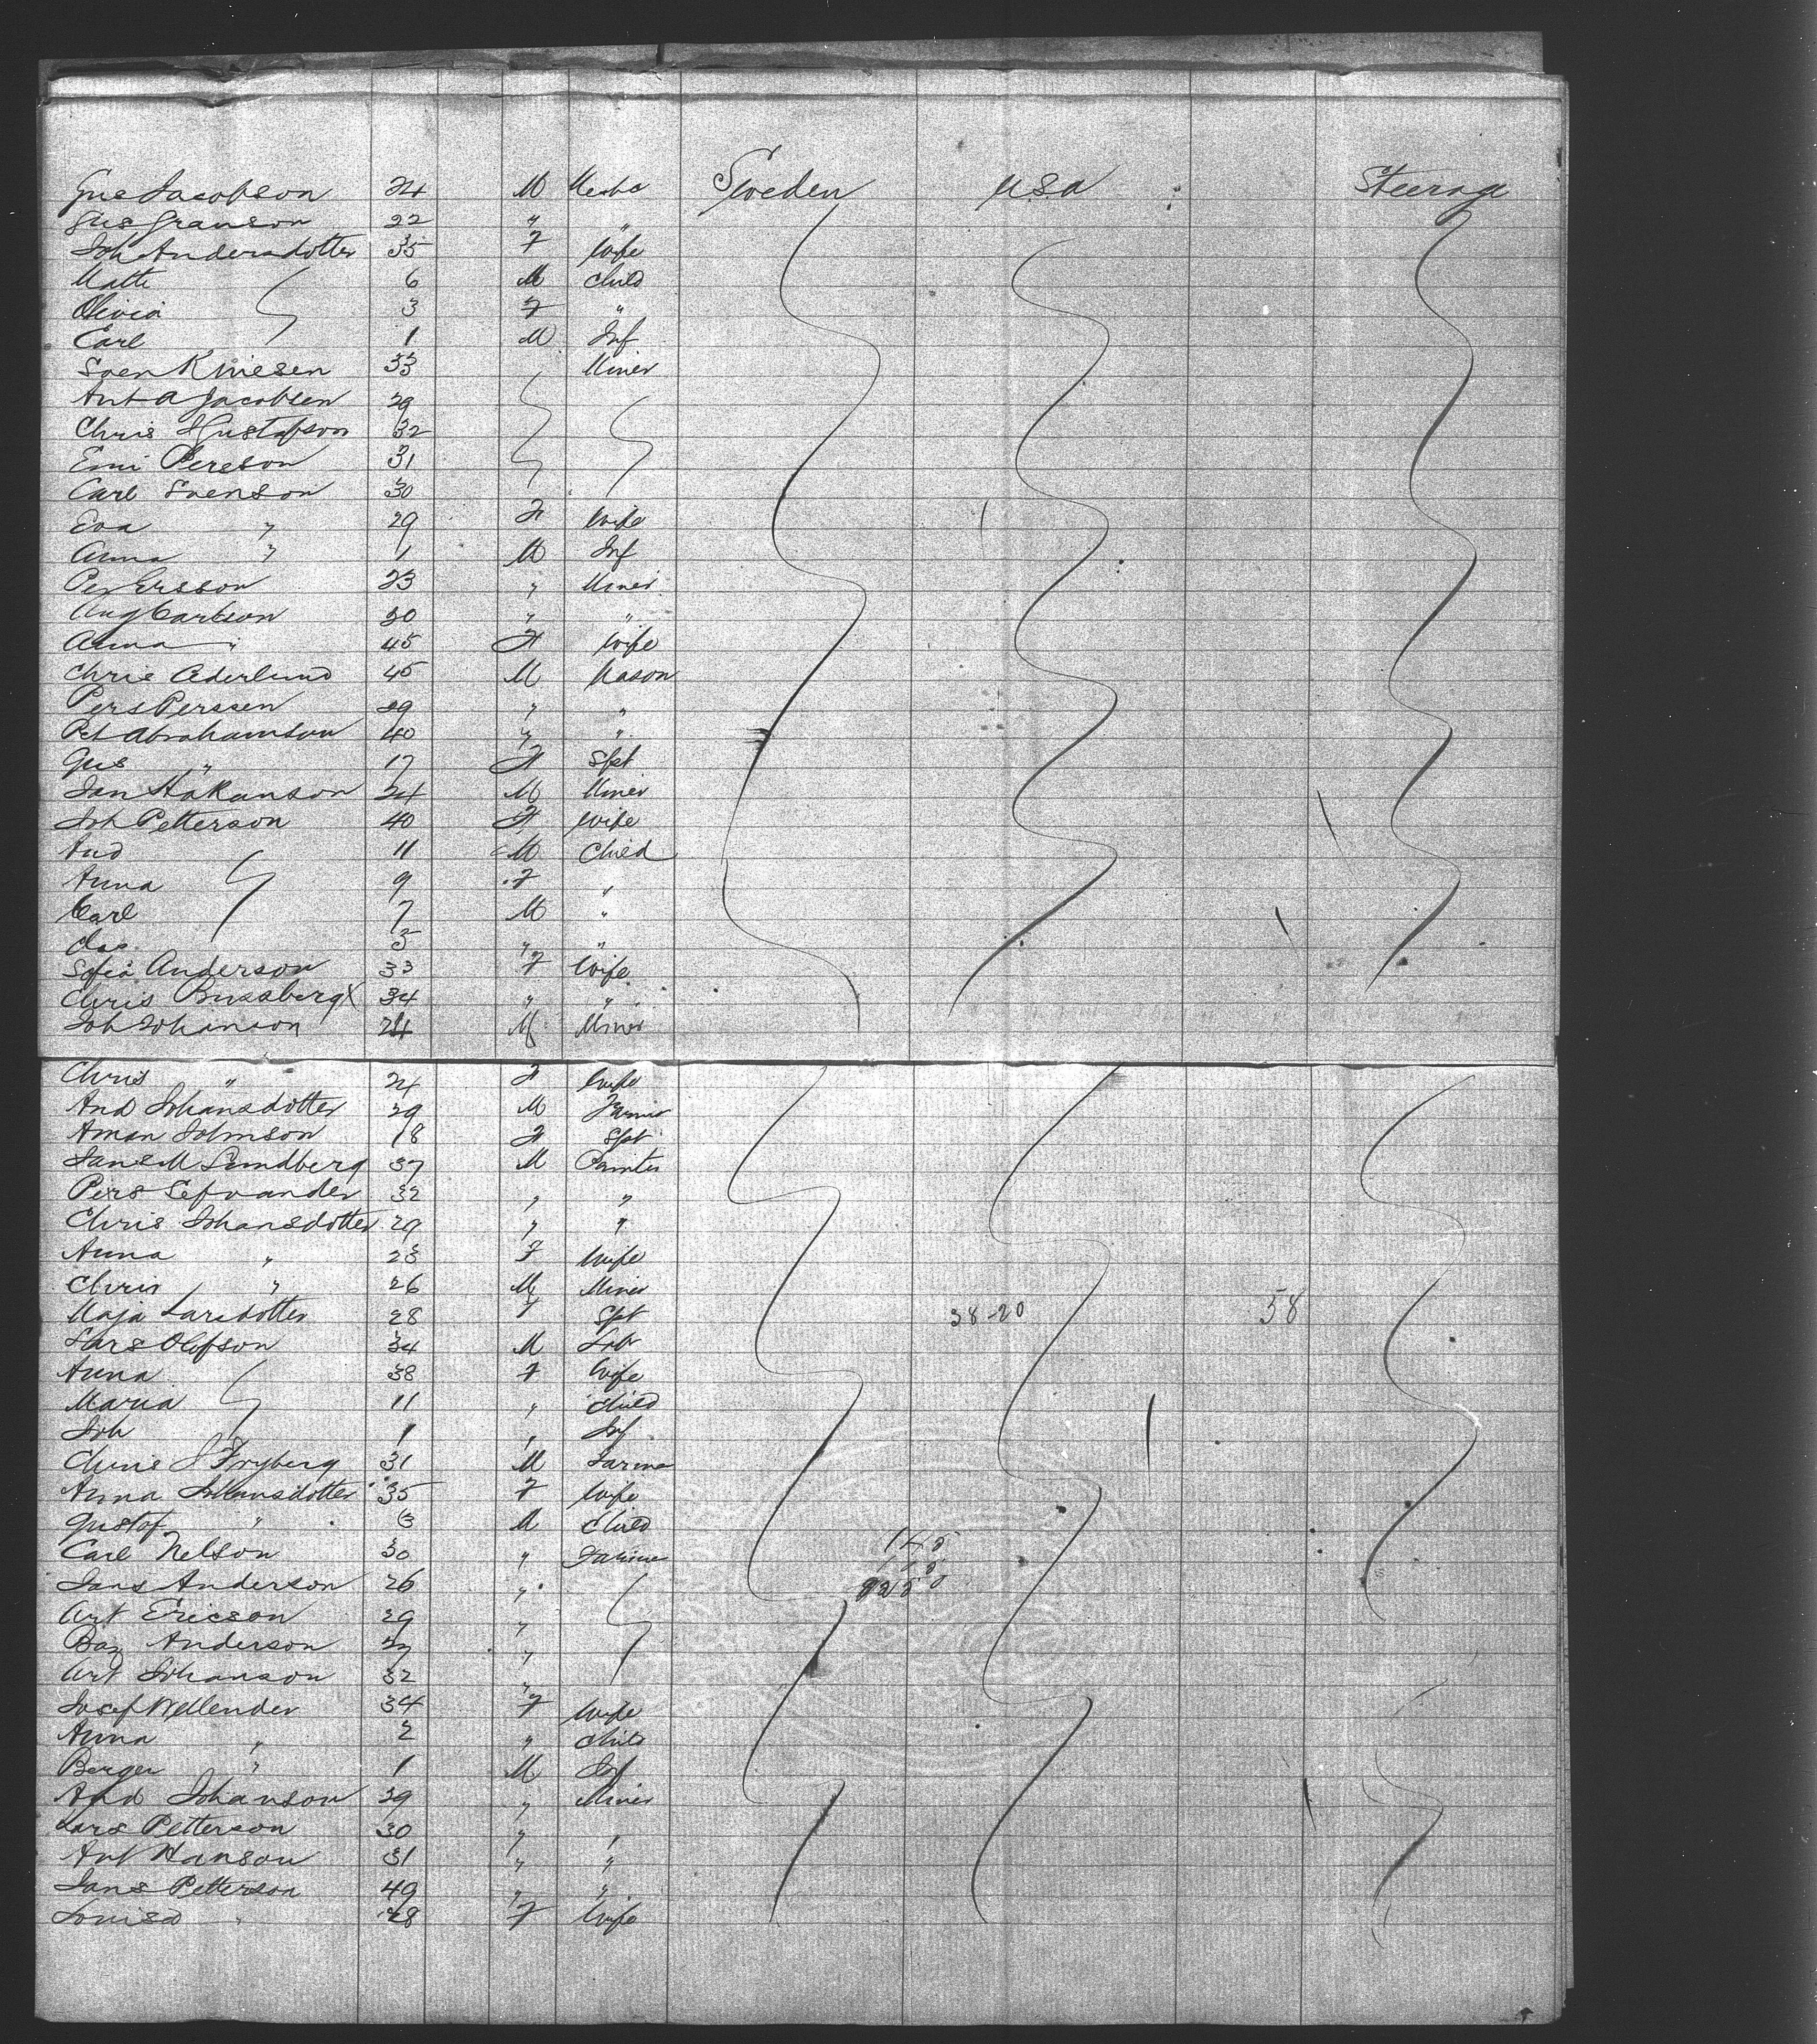 Gus Jacobson 24 M Mecha Sweden U.S.A Steerage
Gus Granson 22 " "
Joh Andersdotter 35 F Wife
Matti 6 M Child
Olivia 3 F "
Carl 1 M Inf
Sven 33 Miner
Ant A Jacobsen 29
Chris J Gustafson 32
Emi Pereson 31
Carl Svenson 30
Eva " 29 F Wife
Anna " 1 M Inf
Per Ersson 23 " Miner
Aug Carlson 30 " "
Anna " 45 F Wife
Chris Aderlund 45 M Mason
Pers Perssen 29 " "
Pet Abrahamson 40 " "
Gus " 17 F Spt
Jan Hakanson 24 M Miner
Joh Petterson 40 F Wife
And 11 M Child
Anna 9 F "
Carl 7 M "
5 " "
Sofia Anderson 33 F Wife
Chris Bussberg X 34 " "
Joh Johanson 24 M Miner
Chris " 24 F Wife
And Johansdotter 29 M Farmer
Aman Johnson 18 F Spt
Jans M Sundberg 37 M Painter
Pers 32 " "
Chris Johansdotter 29 " "
Anna " 28 F Wife
Chris " 26 M Miner
Maja Larsdotter 28 F Spt 38-20 58
Lars Olofson 34 M Lab
Anna 38 F Wife
Maria 11 " Child
Joh 1 " Inf
Chris J Fryberg 31 M Farmer
Anna Johansdotter 35 F Wife
Gustof " 6 M Child
Carl Nelson 30 " Farmer
Jans Anderson 26 "
Art Ericson 29 "
Anderson 27 "
Art Johanson 32 "
Josef Wellender 34 F Wife
Anna " 2 " Child
Berger " 1 M Inf
And Johanson 29 " Miner
Lars Petterson 30 " "
Ant Hanson 31 " "
Jans Petterson 49 " "
Louisa " 28 F Wife